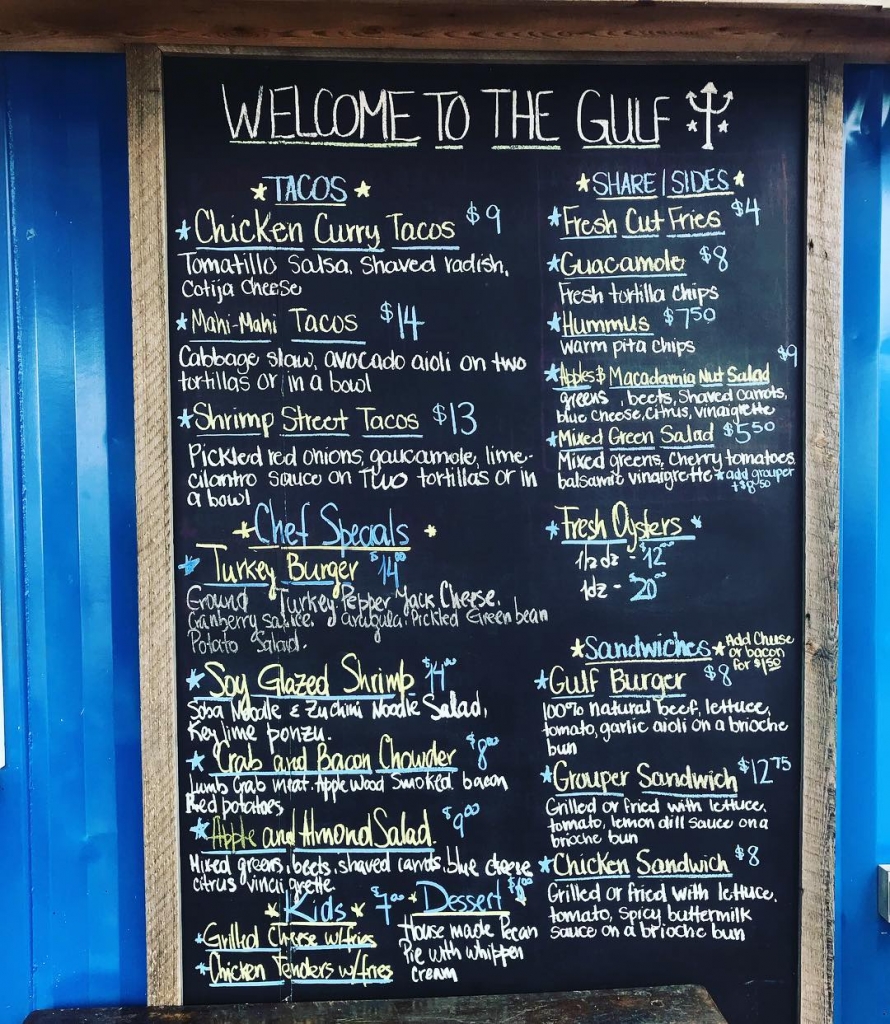 WELCOME TO THE GULF
TACOS
Chicken Curry Tacos $9
Tomatillo Salsa, Shaved radish,
Cotija Cheese
Mahi-Mahi Tacos $14
Cabbage slaw, avocado aioli on two
tortillas or in a bowl
Shrimp Street Tacos $13
Pickled red onions, gaucamole, lime-
cilantro sauce on Two tortillas or in
a bowl
Chef Specials
Turkey Burger $14.00
Ground Turkey, Pepper Jack Cheese.
Cranberry sauce. arugula. Pickled Green bean
Potato Salad.
Soy Glazed Shrimp $14.00
Soba Noodle & Zuchini Noodle Salad,
Key lime ponzu.
Crab and Bacon Chowder $8.00
Lumb Crab meat. Apple Wood Smoked bacon
Red potatoes
Apple and Almond Salad. $9.00
Mixed greens, beets, shaved carrots, blue cheese
citrus vinaigrette.
Kids $7.00
Grilled Cheese w/fries
Chicken Tenders w/fries
Dessert
House made Pecan
Pie with whippen
cream
SHARE | SIDES
Fresh Cut Fries $4
Guacamole $8
Fresh tortilla chips
Hummus $7.50
warm pita chips
Apples & Macadamia Nut Salad $9
greens, beets, shaved carrots,
blue cheese, citrus, vinaigrette
Mixed Green Salad $5.50
Mixed greens, cherry tomatoes
balsamic vinaigrette add grouper
+$8.50
Fresh Oysters
1/2 dz - $12.00
1dz - $20.00
Sandwiches Add Cheese
or bacon
for $1.50
Gulf Burger $8
100% natural beef, lettuce,
tomato, garlic aioli on a brioche
bun
Grouper Sandwich $12.75
Grilled or fried with lettuce,
tomato, lemon dill sauce on a
brioche bun
Chicken Sandwich $8
Grilled or fried with lettuce,
tomato, spicy buttermilk
sauce on a brioche bun